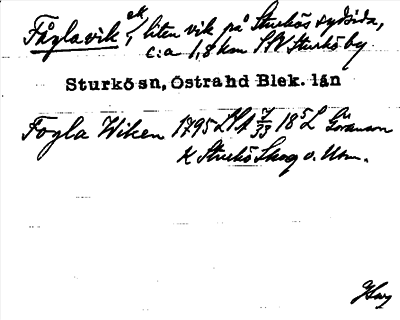 Fåglavik, liten vik på Sturkös sydsida,
c:a 1,8 km SSV Sturkö by
Sturkö sn, Östra hd Blek. län
Fogla Wiken 1795 LSA
K Sturkö Skog o. Utm.